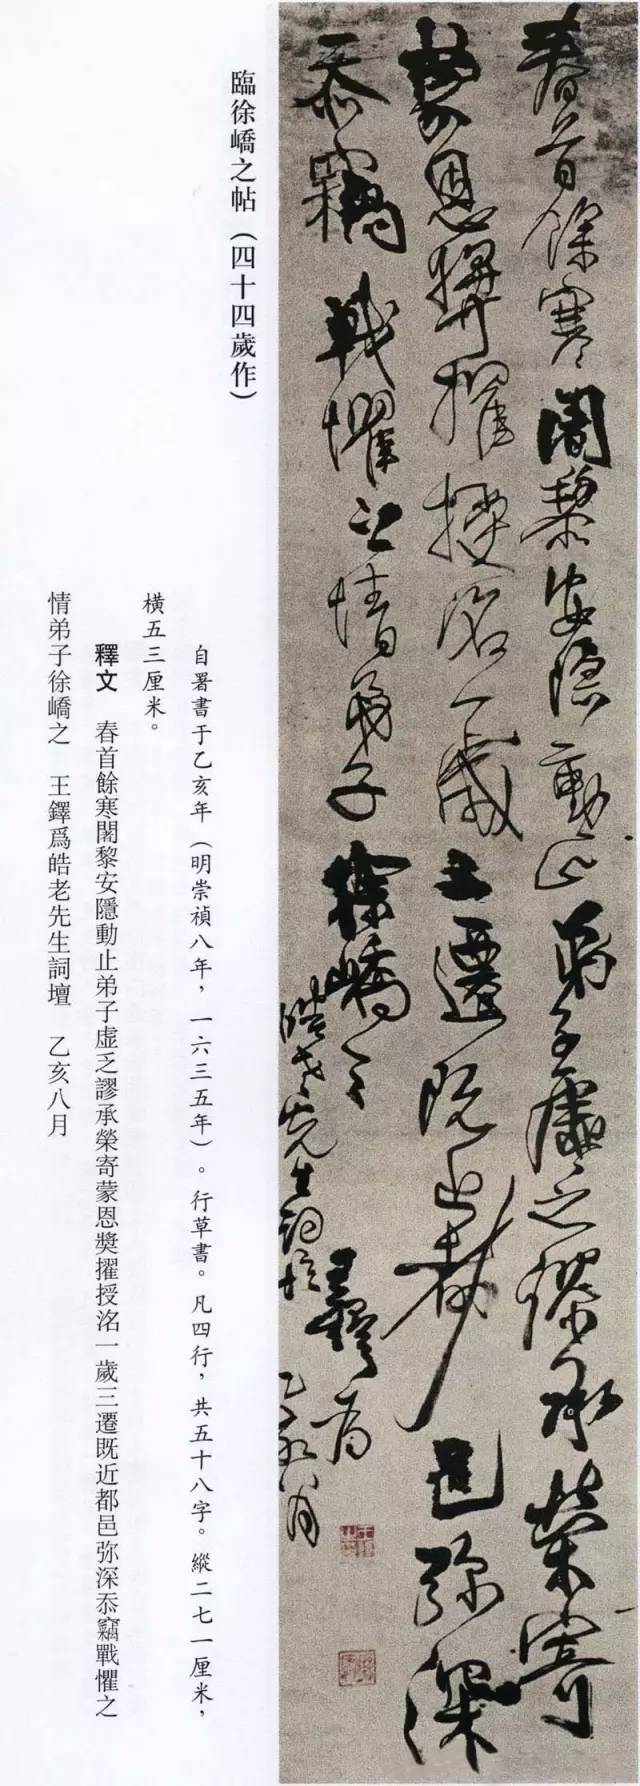 春首餘寒闍黎安隱動止弟子虛乏謬承榮寄
蒙恩獎擢授洺一歲三遷既近都邑弥深
忝竊戰懼之情弟子徐嶠之 王鐸爲
皓老先生詞壇 乙亥八月
臨徐嶠之帖（四十四歲作）
自署書于乙亥年（明崇禎八年，一六三五年）。行草書。凡四行，共五十八字。縱二七一厘米，
橫五三厘米。
釋文 春首餘寒闍黎安隱動止弟子虛乏謬承榮寄蒙恩獎擢授洺一歲三遷既近都邑弥深忝竊戰懼之
情弟子徐嶠之 王鐸爲皓老先生詞壇 乙亥八月